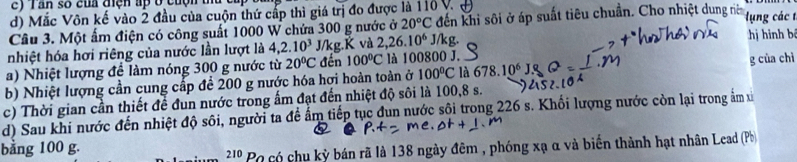 c) Tần số của điện áp ở cuộn thứ cấp
d) Mắc Vôn kế vào 2 đầu của cuộn thứ cấp thì giá trị đo được là 110 V.
Câu 3. Một ấm điện có công suất 1000 W chứa 300 g nước ở 20°C đến khi sôi ở áp suất tiêu chuẩn. Cho nhiệt dung riêng
nhiệt hóa hơi riêng của nước lần lượt là 4,2.10³ J/kg.K và 2,26.10⁶ J/kg.
a) Nhiệt lượng để làm nóng 300 g nước từ 20°C đến 100°C là 100800 J. S
b) Nhiệt lượng cần cung cấp để 200 g nước hóa hơi hoàn toàn ở 100°C là 678.10⁶ J. S Q = L.m
c) Thời gian cần thiết để đun nước trong ấm đạt đến nhiệt độ sôi là 100,8 s.
d) Sau khi nước đến nhiệt độ sôi, người ta để ấm tiếp tục đun nước sôi trong 226 s. Khối lượng nước còn lại trong ấm
bằng 100 g.
P.t = m.c.Δt + L.m
²¹⁰ Po có chu kỳ bán rã là 138 ngày đêm , phóng xạ α và biến thành hạt nhân Lead (Pb)
dụng các
hị hình
g của chì